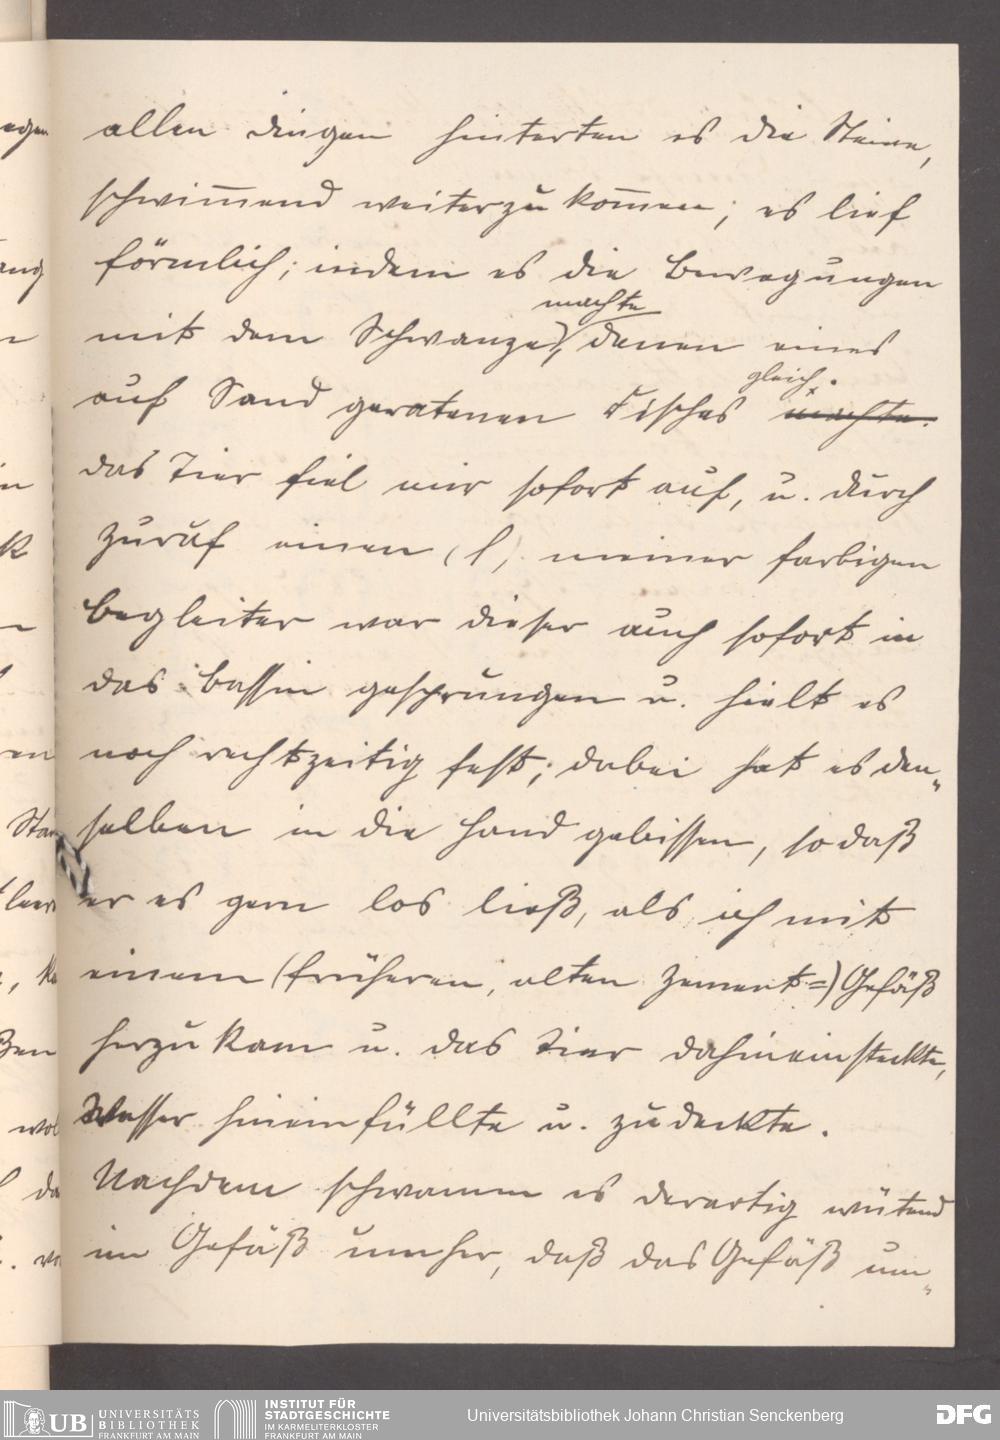 allen dingen hinterten es die Steine,
schwim̅end weiterzukom̅en; es lief
förmlich; indem es die Bewegungen
machte
mit dem Schwanze), denen eines
gleich.
auf Sand geratenen Fisches machte.
das Tier fiel mir sofort auf, u. durch
Zuruf einen (s) meiner farbigen
Begleiter war dieser auch sofort in
das Bassin gesprungen u. hielt es
noch rechtzeitig fest; dabei hat es den„
selben in die Hand gebissen, so daß
er es gern los ließ, als ich mit
einem (früheren, alten Zement=) Gefäß
herzukam u. das Tier dahineinsteckte,
Wasser hineinfüllte u. zudeckte.
Nachdem schwamm es derartig wütend
im Gefäß umher, daß das Gefäß um„
UB UNIVERSITÄTS
BIBLIOTHEK
FRANKFURT AM MAIN
INSTITUT FÜR
STADTGESCHICHTE
IM KARMELITERKLOSTER
FRANKFURT AM MAIN
Universitätsbibliothek Johann Christian Senckenberg
DFG